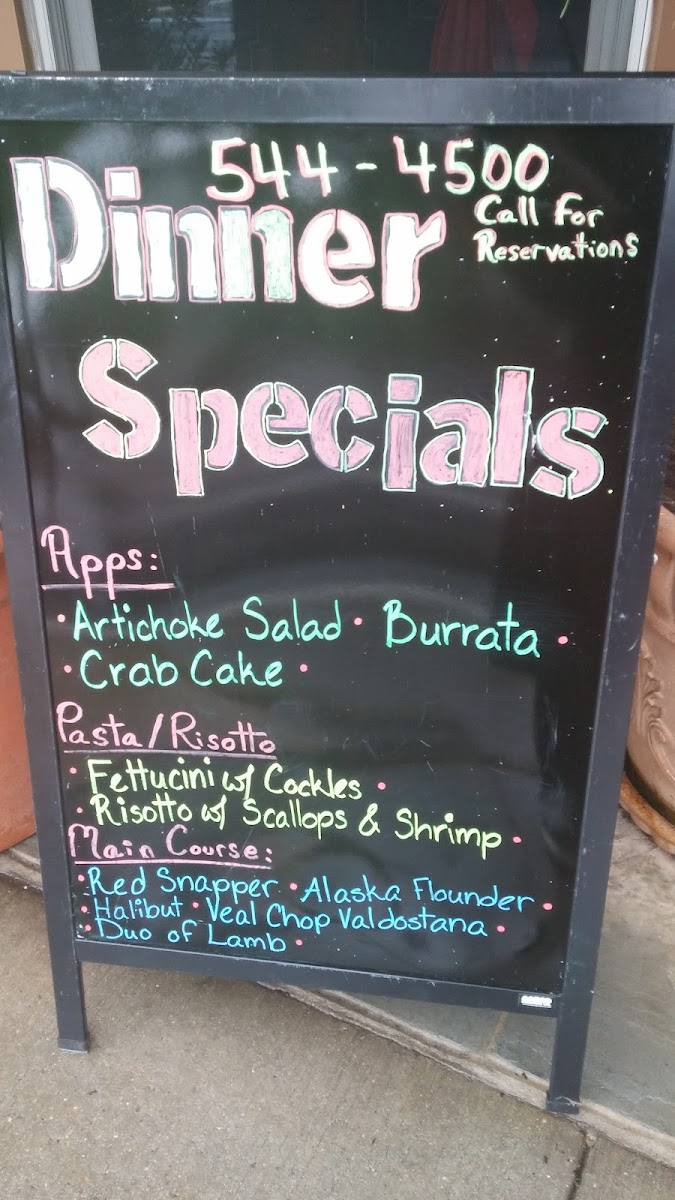 544-4500
Dinner
Call For
Reservations
Specials
Apps:
• Artichoke Salad • Burrata •
• Crab Cake •
Pasta/Risotto
• Fettucini w/ Cockles •
• Risotto w/ Scallops & Shrimp •
Main Course:
• Red Snapper • Alaska Flounder •
• Halibut • Veal Chop Valdostana •
• Duo of Lamb •